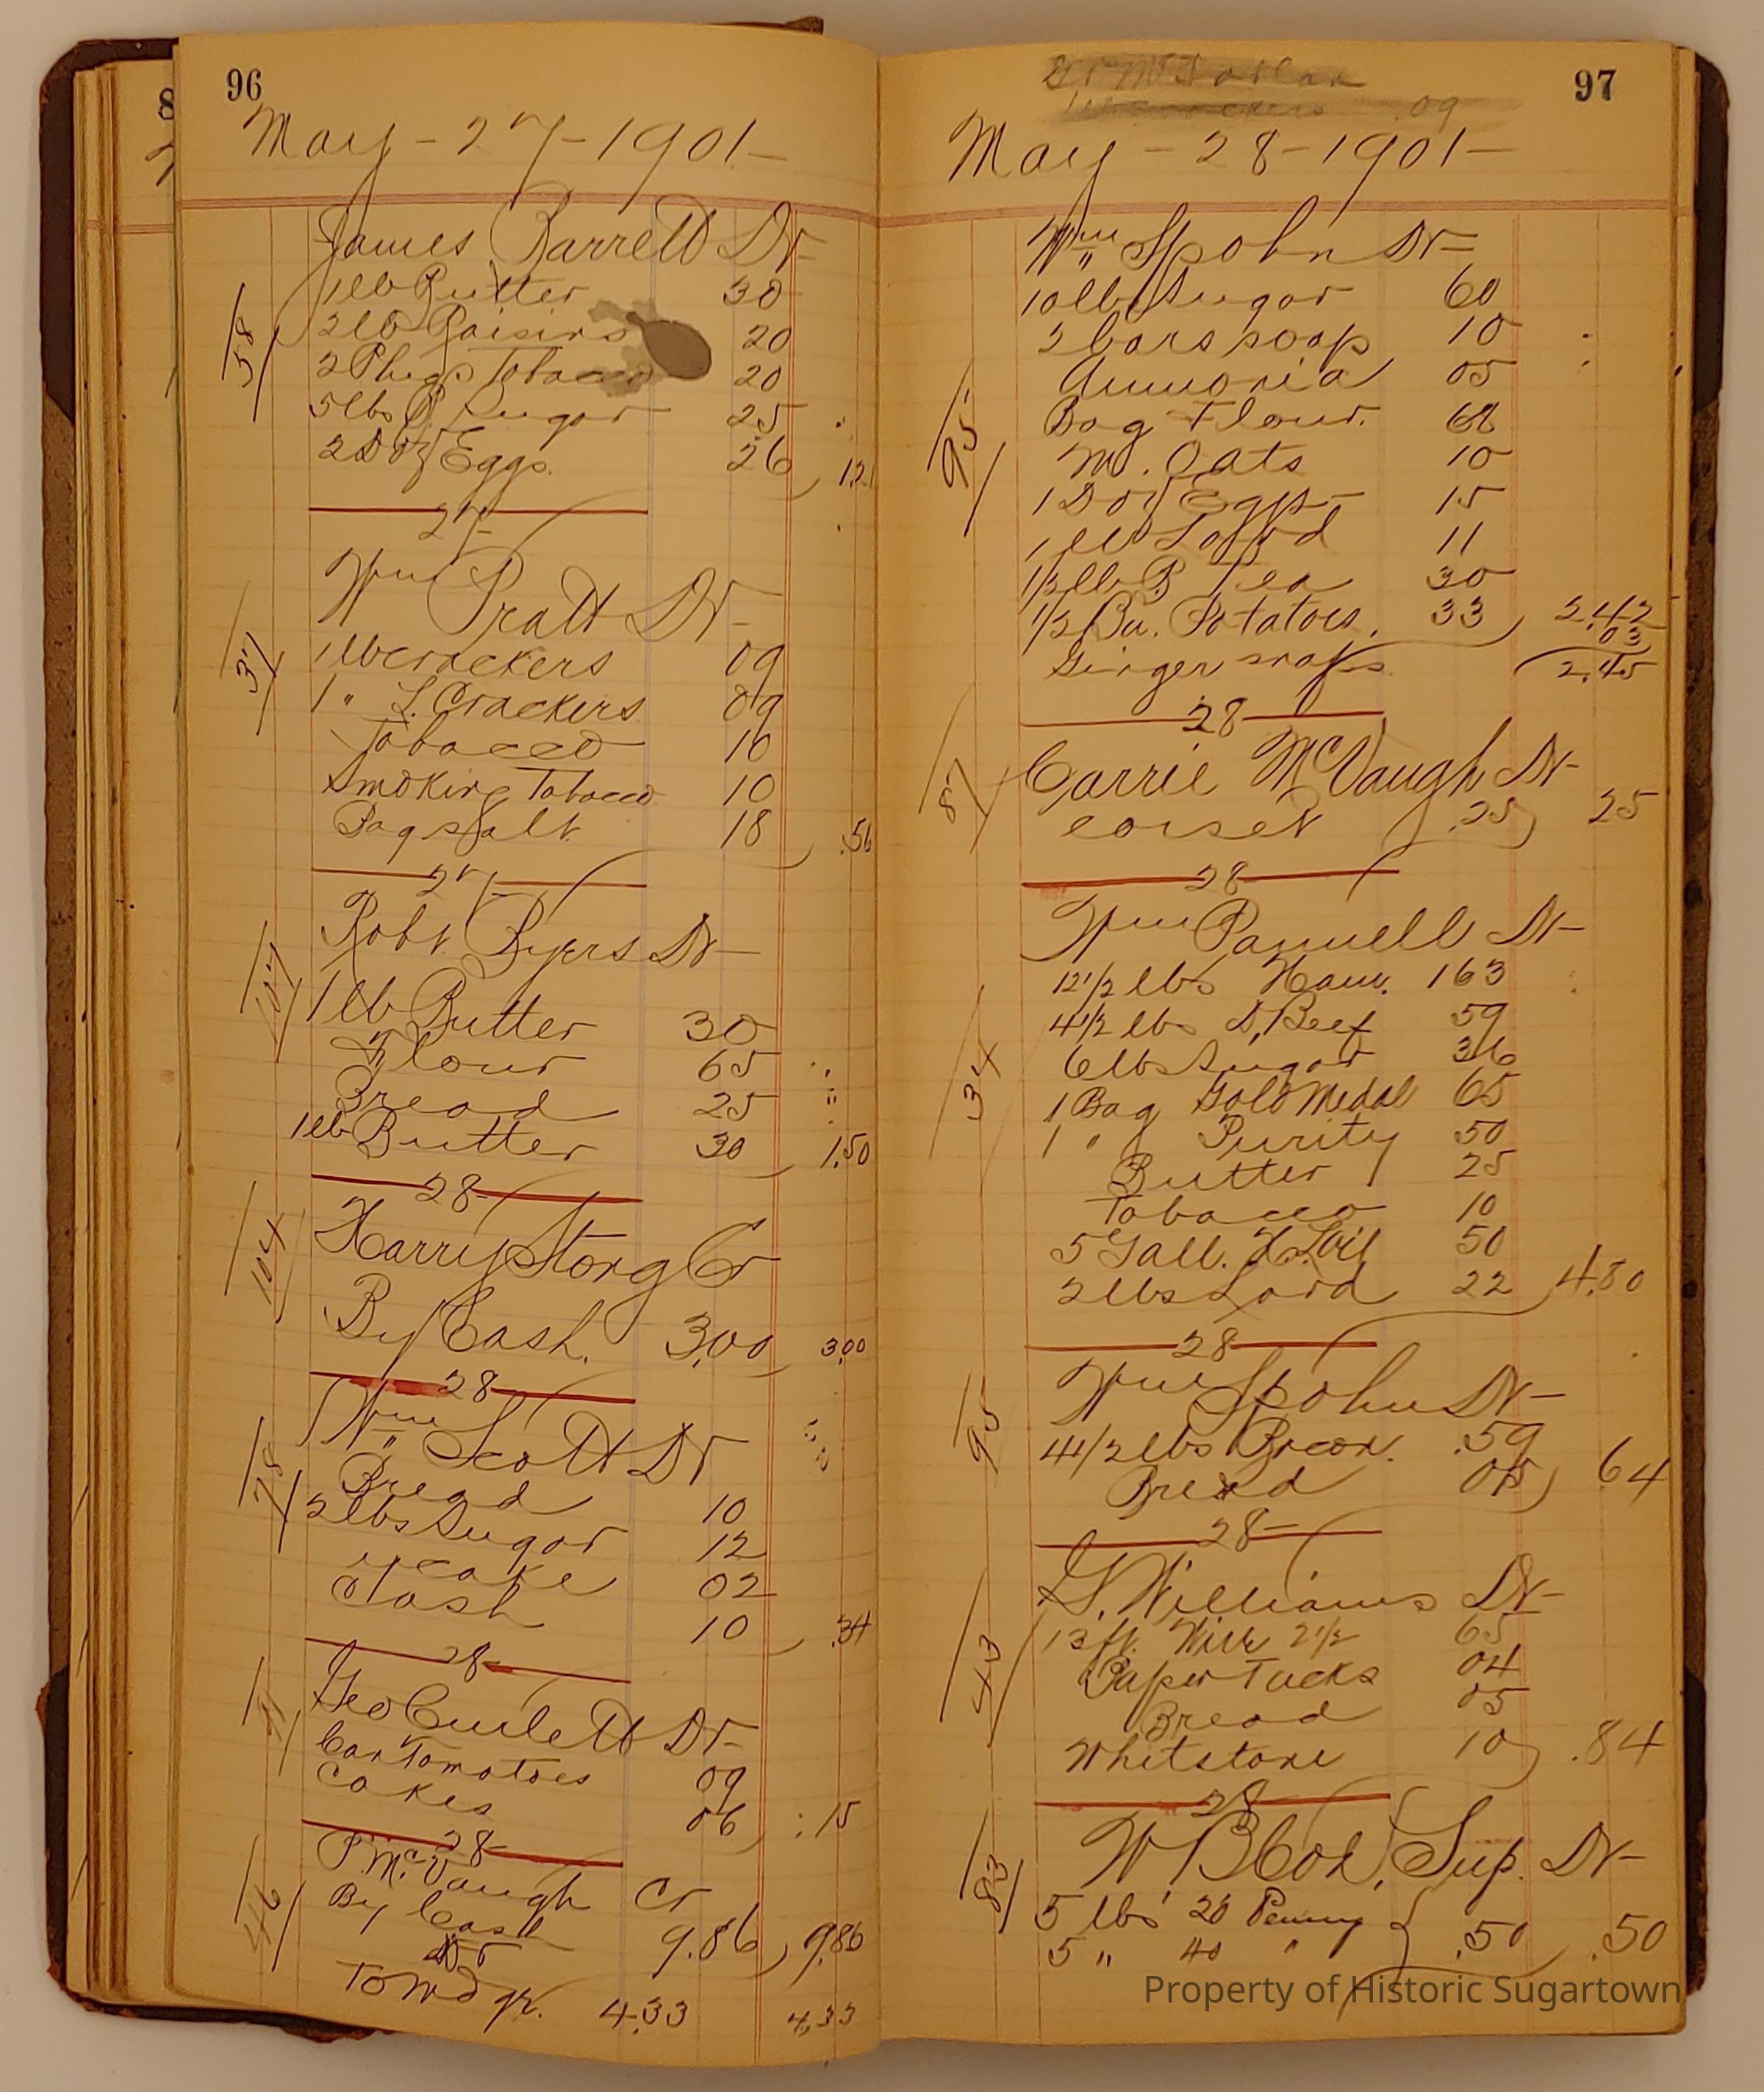 96
May - 27 - 1901 -
James Barrett Dr
58
1 lb Butter 30
2 lb Raisins 20
2 Plugs Tobacco 20
5 lbs B Sugar 25
2 Doz Eggs. 26 1.21
27
Wm Pratt Dr
37
1 lb crackers 09
1 " L. Crackers 09
Tobacco 10
Smoking Tobacco 10
Bag Salt 18 .56
27
Robt. Byers Dr
107
1 lb Butter 30
Flour 65
Bread 25
1 lb Butter 30 1.50
28
Harry Storg Cr
104
By Cash. 3.00 3.00
28
Wm Scott Dr
78
Bread 10
2 lbs Sugar 12
y cake 02
10 .34
28
Geo Curlett Dr
Can Tomatoes 09
Cakes 06 .15
28
P. McVaugh Cr
46
By Cash 9.86 9.86
Dr
To Mdse. 4.33 4.33
97
.09
May - 28 - 1901 -
Wm Spohn Dr
95
10 lbs Sugar 60
3 bars soap 10
Ammonia 05
Bag Flour. 68
M. Oats 10
1 Doz Eggs 15
1 lb Lard 11
1/2 lb B Tea 30
1/2 Bu. Potatoes. 33 2.42
Ginger snaps .03
2.45
28
Carrie McVaugh Dr
57
corset .25 25
28
Wm Pannell Dr
34
12 1/2 lbs Ham. 163
4 1/2 lbs D. Beef 59
6 lbs Sugar 36
1 Bag Gold Medal 65
1 " Purity 50
Butter 25
Tobacco 10
5 Gall. H. L. Oil 50
2 lbs Lard 22 4.80
28
Wm Spohn Dr
95
4 1/2 lbs Bacon. .59
Bread 05 64
28
G. Williams Dr
43
13 ft. Wire 2 1/2 65
Paper Tacks 04
Bread 05
Whitstone 10 .84
28
W B Cox, Sup. Dr
83
5 lbs 20 Penny
5 " 40 " .50 .50
Property of Historic Sugartown